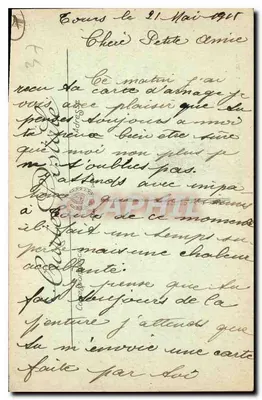 Tours le 21 Mai 1915
Cheie Petite Amie
37
Ce matin j'ai
recu ta carte d'amage je
vois avec plaisir que tu
penses toujours a moi
tu peux bien être sûre
que moi non plus je
m t'oublies pas.
attends avec impa
de ce moment
il fait un temps su
mais une chaleur
accablante.
je pense que tu
fais toujours de la
peinture j'attends que
tu m'envoie une carte
faite par toi
Carte